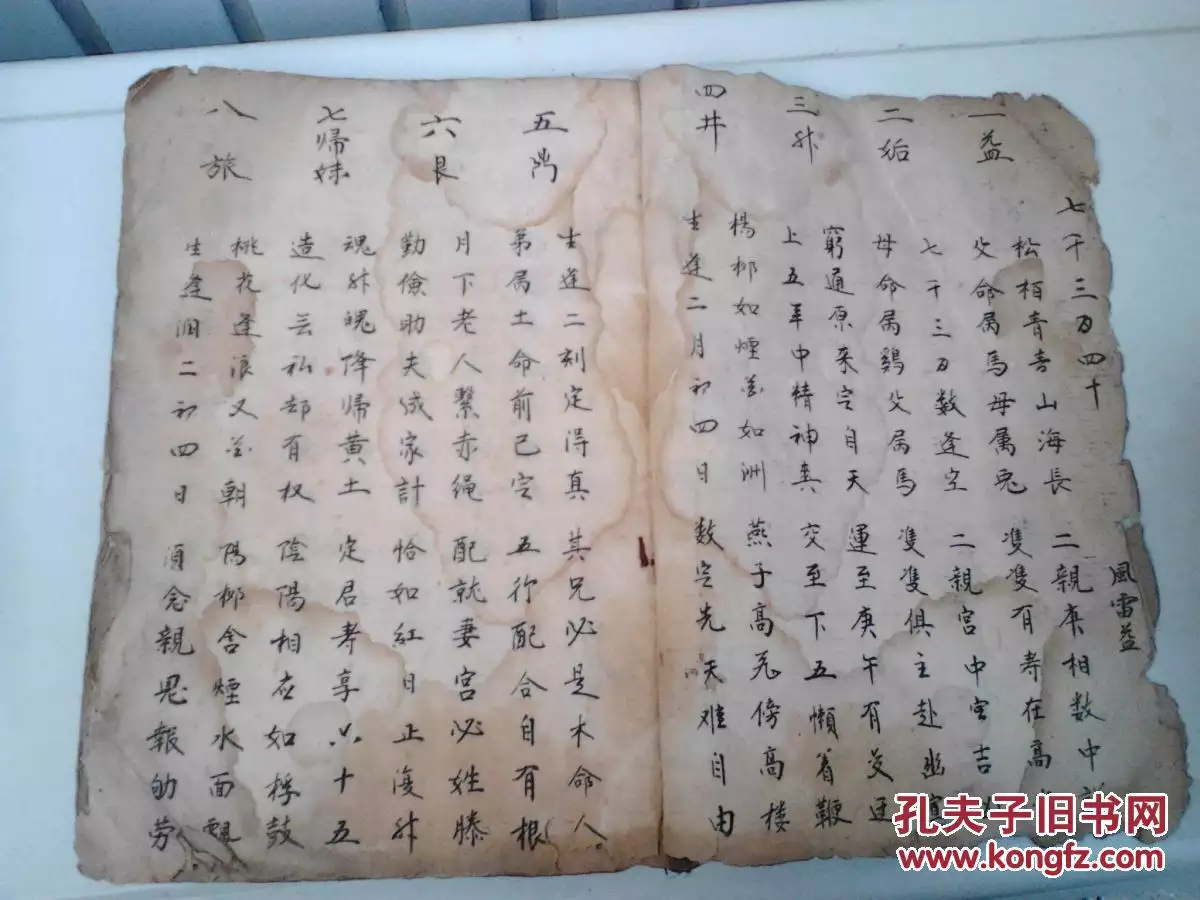 七千三万四十
風雷益
一益
松栢青青山海長 二親庚相数中
父命属馬母属兎 隻隻有寿在高
二姤
七千三万数逢空 二親宮中定吉
母命属鷄父属馬 隻隻俱主赴幽
三升
窮通原来定自天 運至庚午有变迁
上五年中精神爽 交至下五懶着鞭
四井
楊柳如煙花如洲 燕子高飛傍高楼
生逢二月初四日 数定先天难自由
五
生逢二刻定得真 其兄必是木命人
弟属土命前已定 五行配合自有根
六艮
月下老人繋赤绳 配就妻宮必姓滕
勤儉助夫成家計 恰如紅日正復升
七帰妹
魂升魄降帰黄土 定君寿享六十五
造化芸私却有权 陰陽相应如桴鼓
八旅
桃花逢浪又花朝 陽柳含煙水面飄
生逢潤二初四日 須念親恩報劬劳
孔夫子旧书网
www.kongfz.com